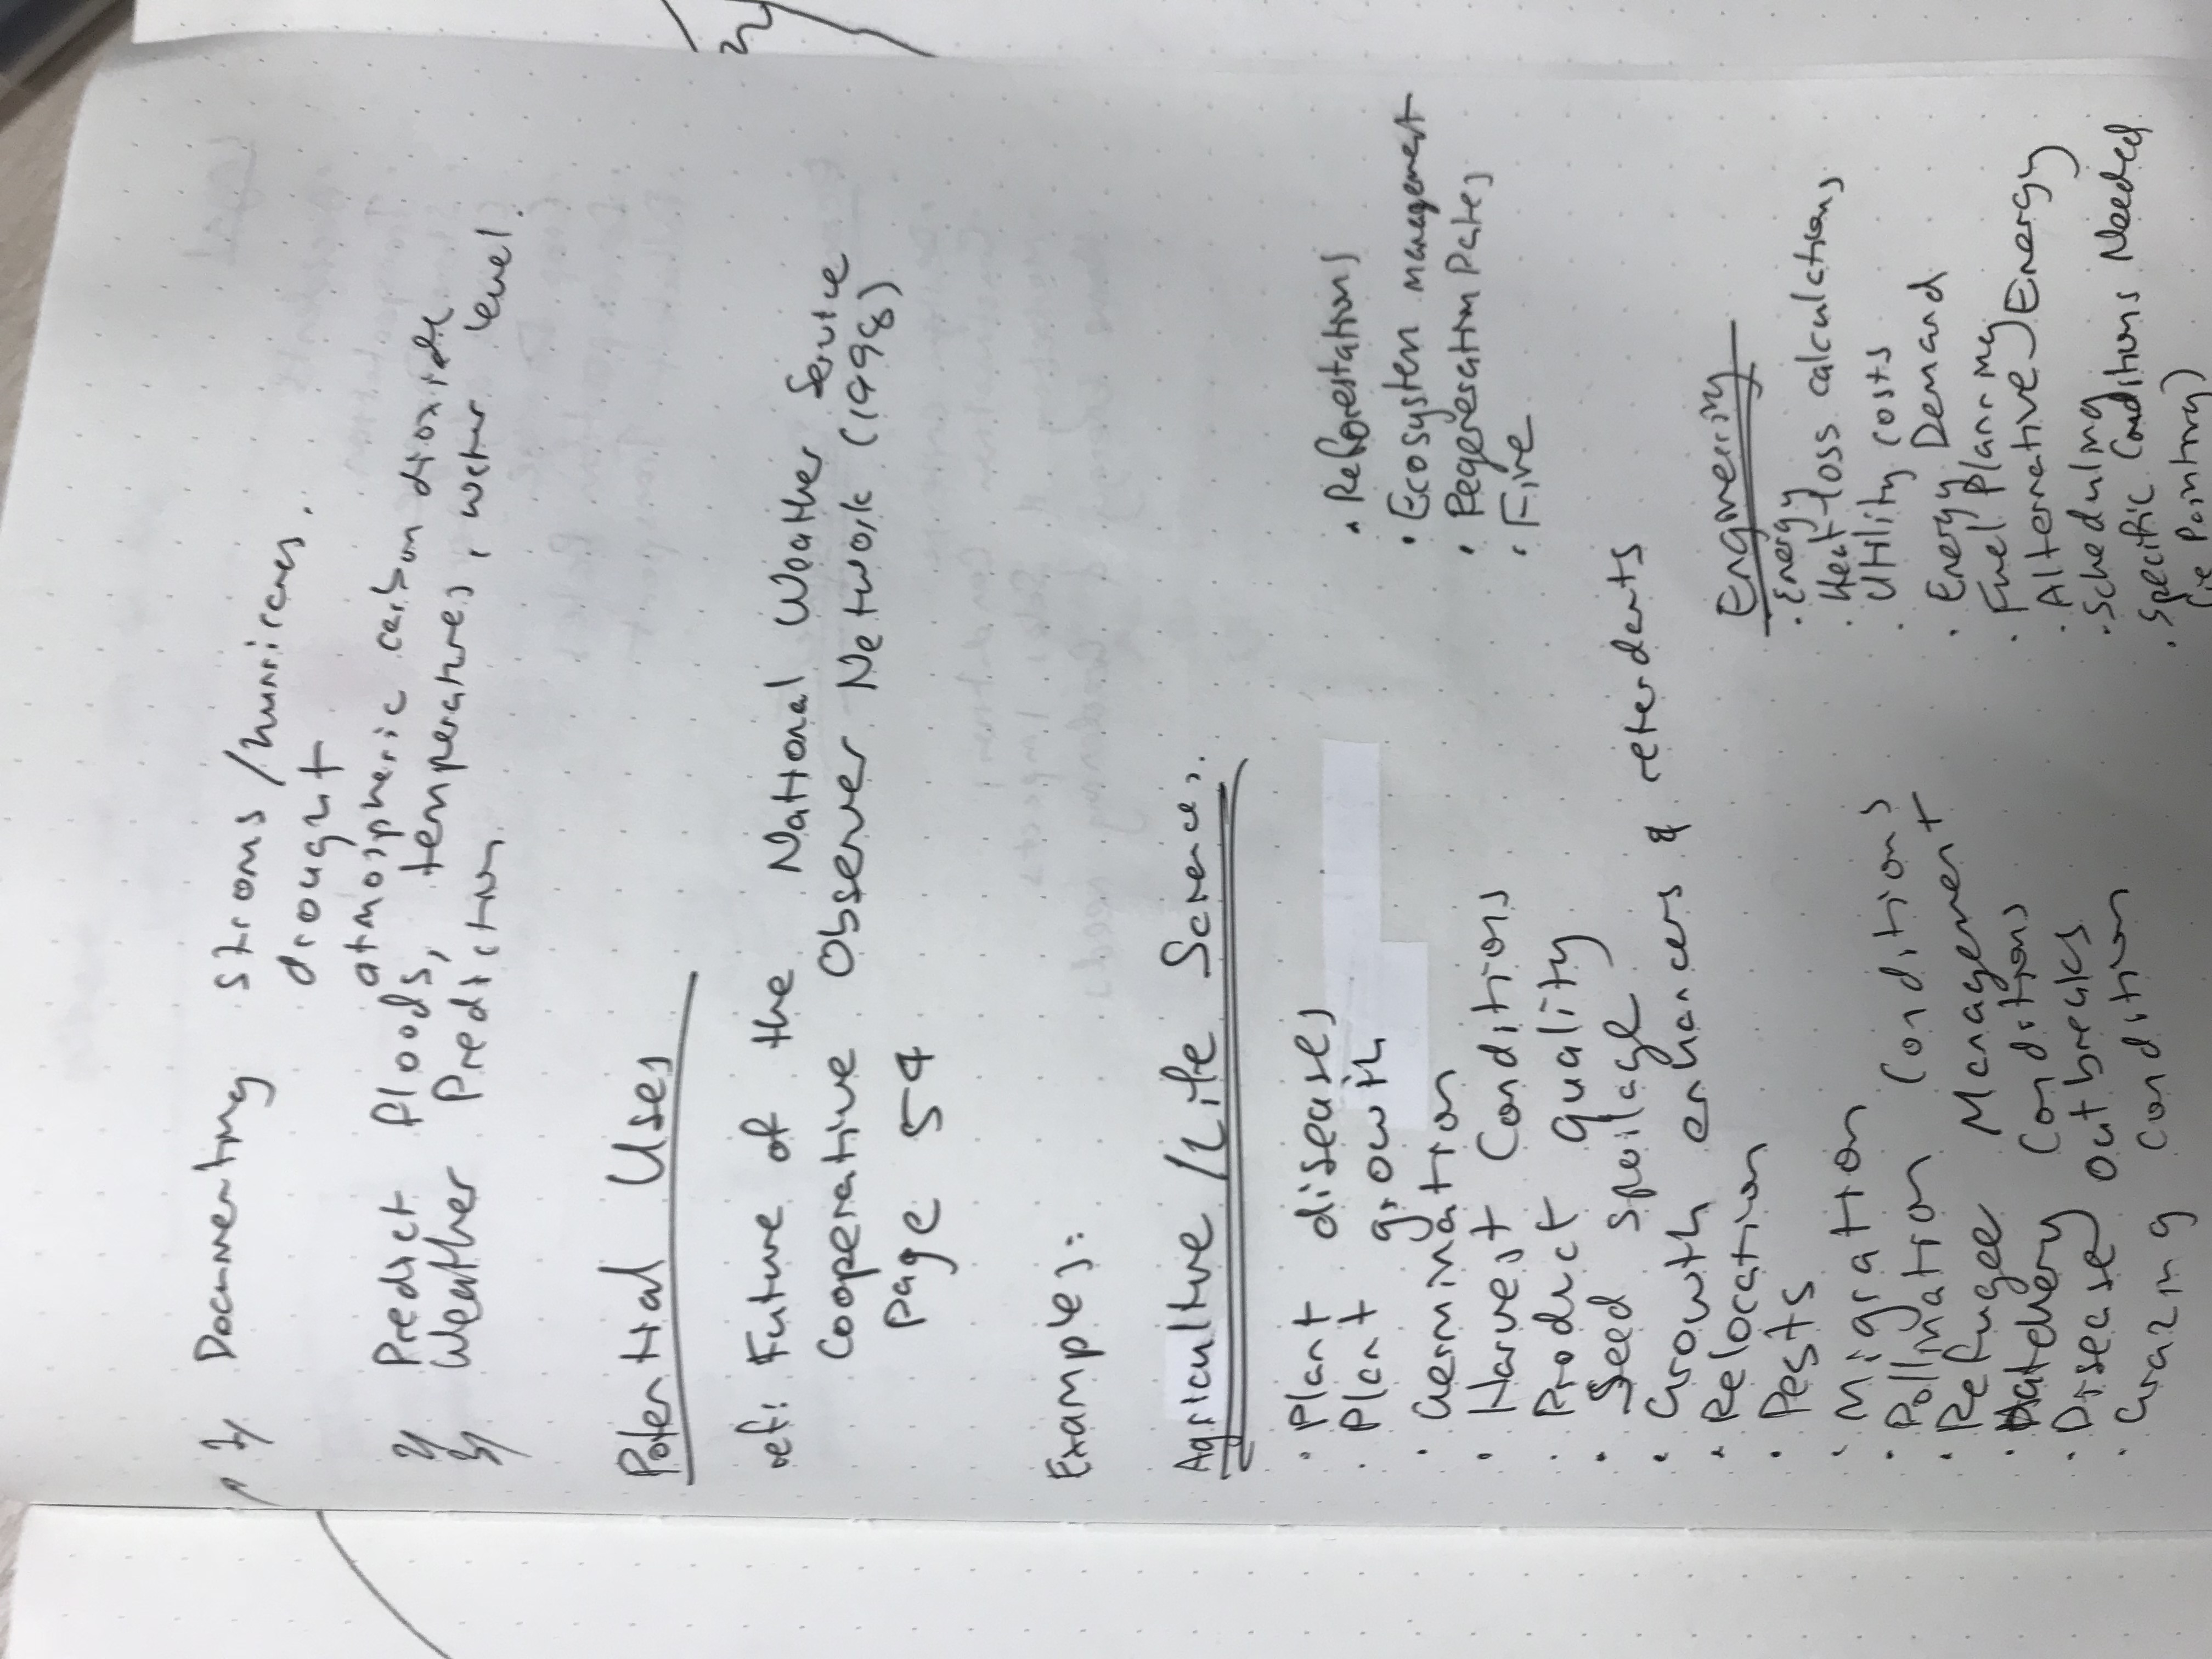 1/ Documenting stroms/hurricanes.
drought
atmospheric carbon dioxide
2/ Predict floods, temperatures, water level.
3/ Weather Prediction
Potential Uses
ref: Future of the National Weather Service
Cooperative Observer Network (1998)
page 54
Examples:
Agriculture/Life Sciences.
• Plant diseases
• Plant growth
• Germination
• Harvest Conditions
• Product quality
• Seed spoilage
• Growth enhancers & reterdants
• Relocation
• Pests
• Migration
• Pollination Conditions
• Refugee Management
• Hatchery Conditions
• Disease outbreaks
• Grazing condition
• Reforestations
• Ecosystem management
• Regeneration Rates
• Fire
Engineering
• Energy
• Heat loss calculations
• Utility costs
• Energy Demand
• Fuel Planning
• Alternative Energy
• Scheduling
• Specific Conditions Needed
(ie Painting)